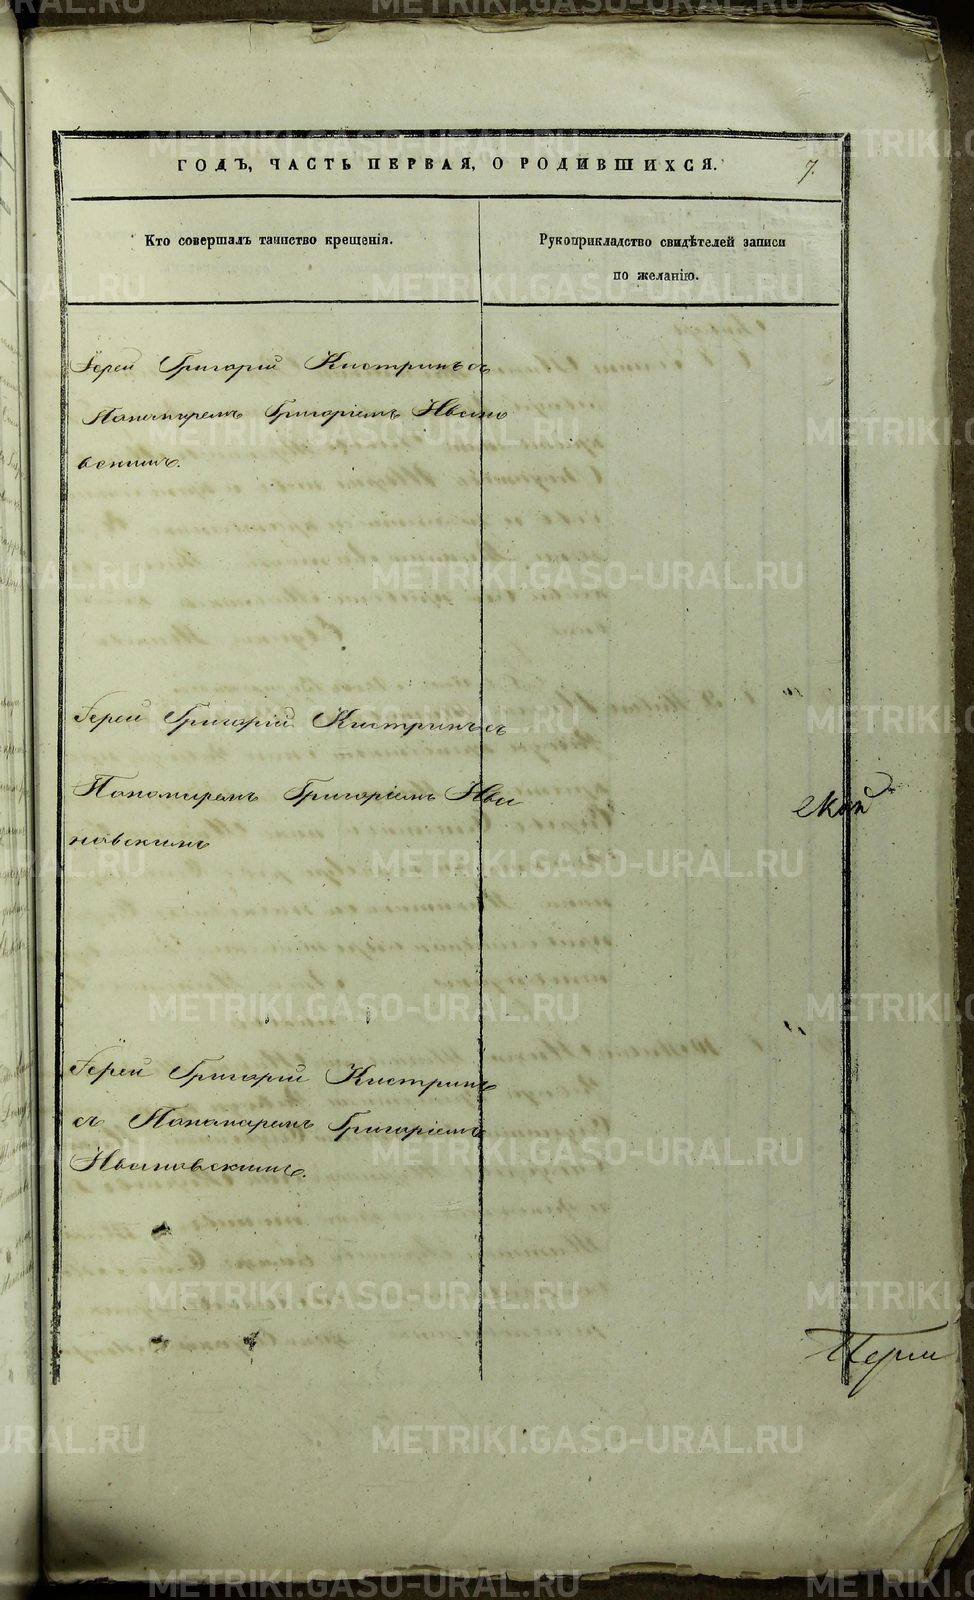 ГОДЪ, ЧАСТЬ ПЕРВАЯ, О РОДИВШИХСЯ.
7.
Кто совершалъ таинство крещенія.
Рукоприкладство свидѣтелей записи
по желанію.
Іерей Григорій Кистринъ съ
Пономаремъ Григоріемъ Ивано
вскимъ.
Іерей Григорій Кистринъ съ
Пономаремъ Григоріемъ Ива
новскимъ
ской
Іерей Григорій Кистринъ
съ Пономаремъ Григоріемъ
Ивановскимъ.
Перм
METRIKI.GASO-URAL.RU